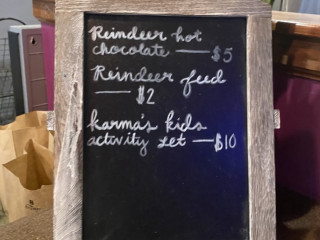 Reindeer hot
chocolate — $5
Reindeer feed
— $2
Karma's kids
activity set — $10